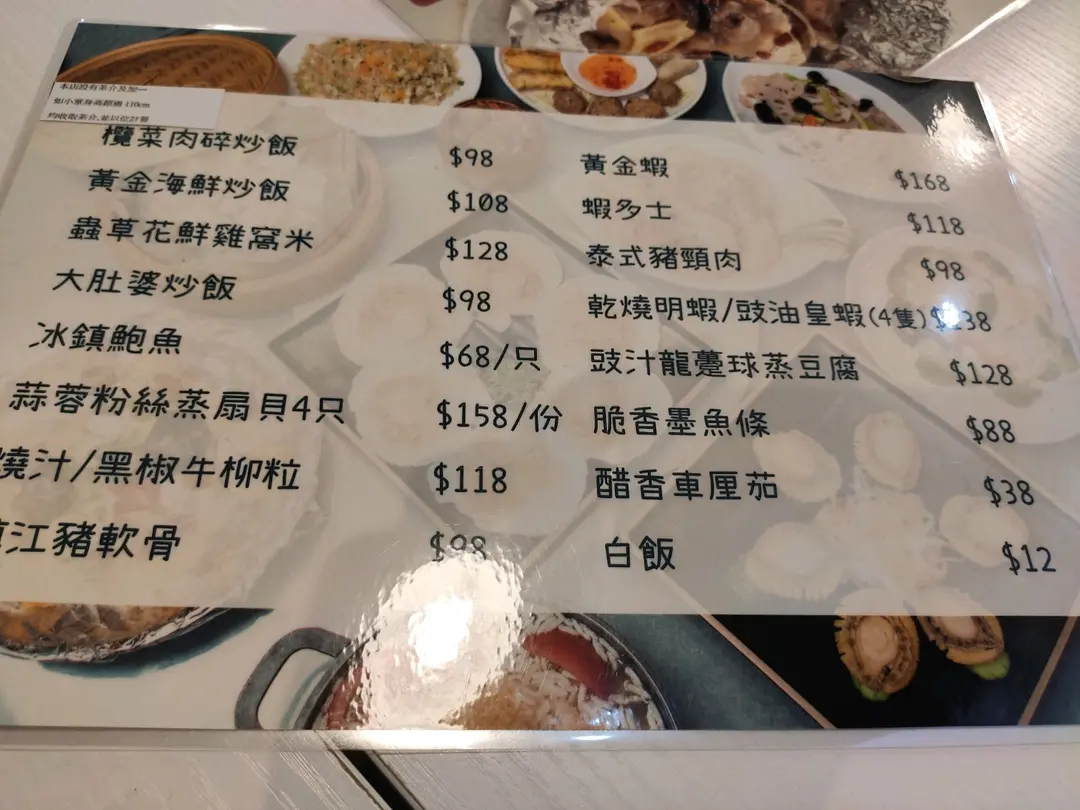 本店設有茶介及加一
如小童身高超過 110cm
均收取茶介,並以位計算
欖菜肉碎炒飯 $98
黃金海鮮炒飯 $108
蟲草花鮮雞窩米 $128
大肚婆炒飯 $98
冰鎮鮑魚 $68/只
蒜蓉粉絲蒸扇貝4只 $158/份
燒汁/黑椒牛柳粒 $118
江豬軟骨 $98
黃金蝦 $168
蝦多士 $118
泰式豬頸肉 $98
乾燒明蝦/豉油皇蝦(4隻) $138
豉汁龍躉球蒸豆腐 $128
脆香墨魚條 $88
醋香車厘茄 $38
白飯 $12